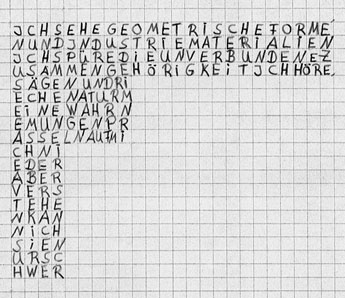 JCHSEHEGEOMETRISCHEFORME
NUNDJNDUSTRIEMATERIALIEN
JCHSPÜREDIEUNVERBUNDENEZ
USAMMENGEHÖRIGKEITJCHHÖRE
SÄGENUNDRI
ECHENATURM
EINEWAHRN
EMUNGENPR
ASSELNAUFMI
CHNI
EDER
ABER
VERS
TEHE
NKAN
NICH
SIEN
URSC
HWER